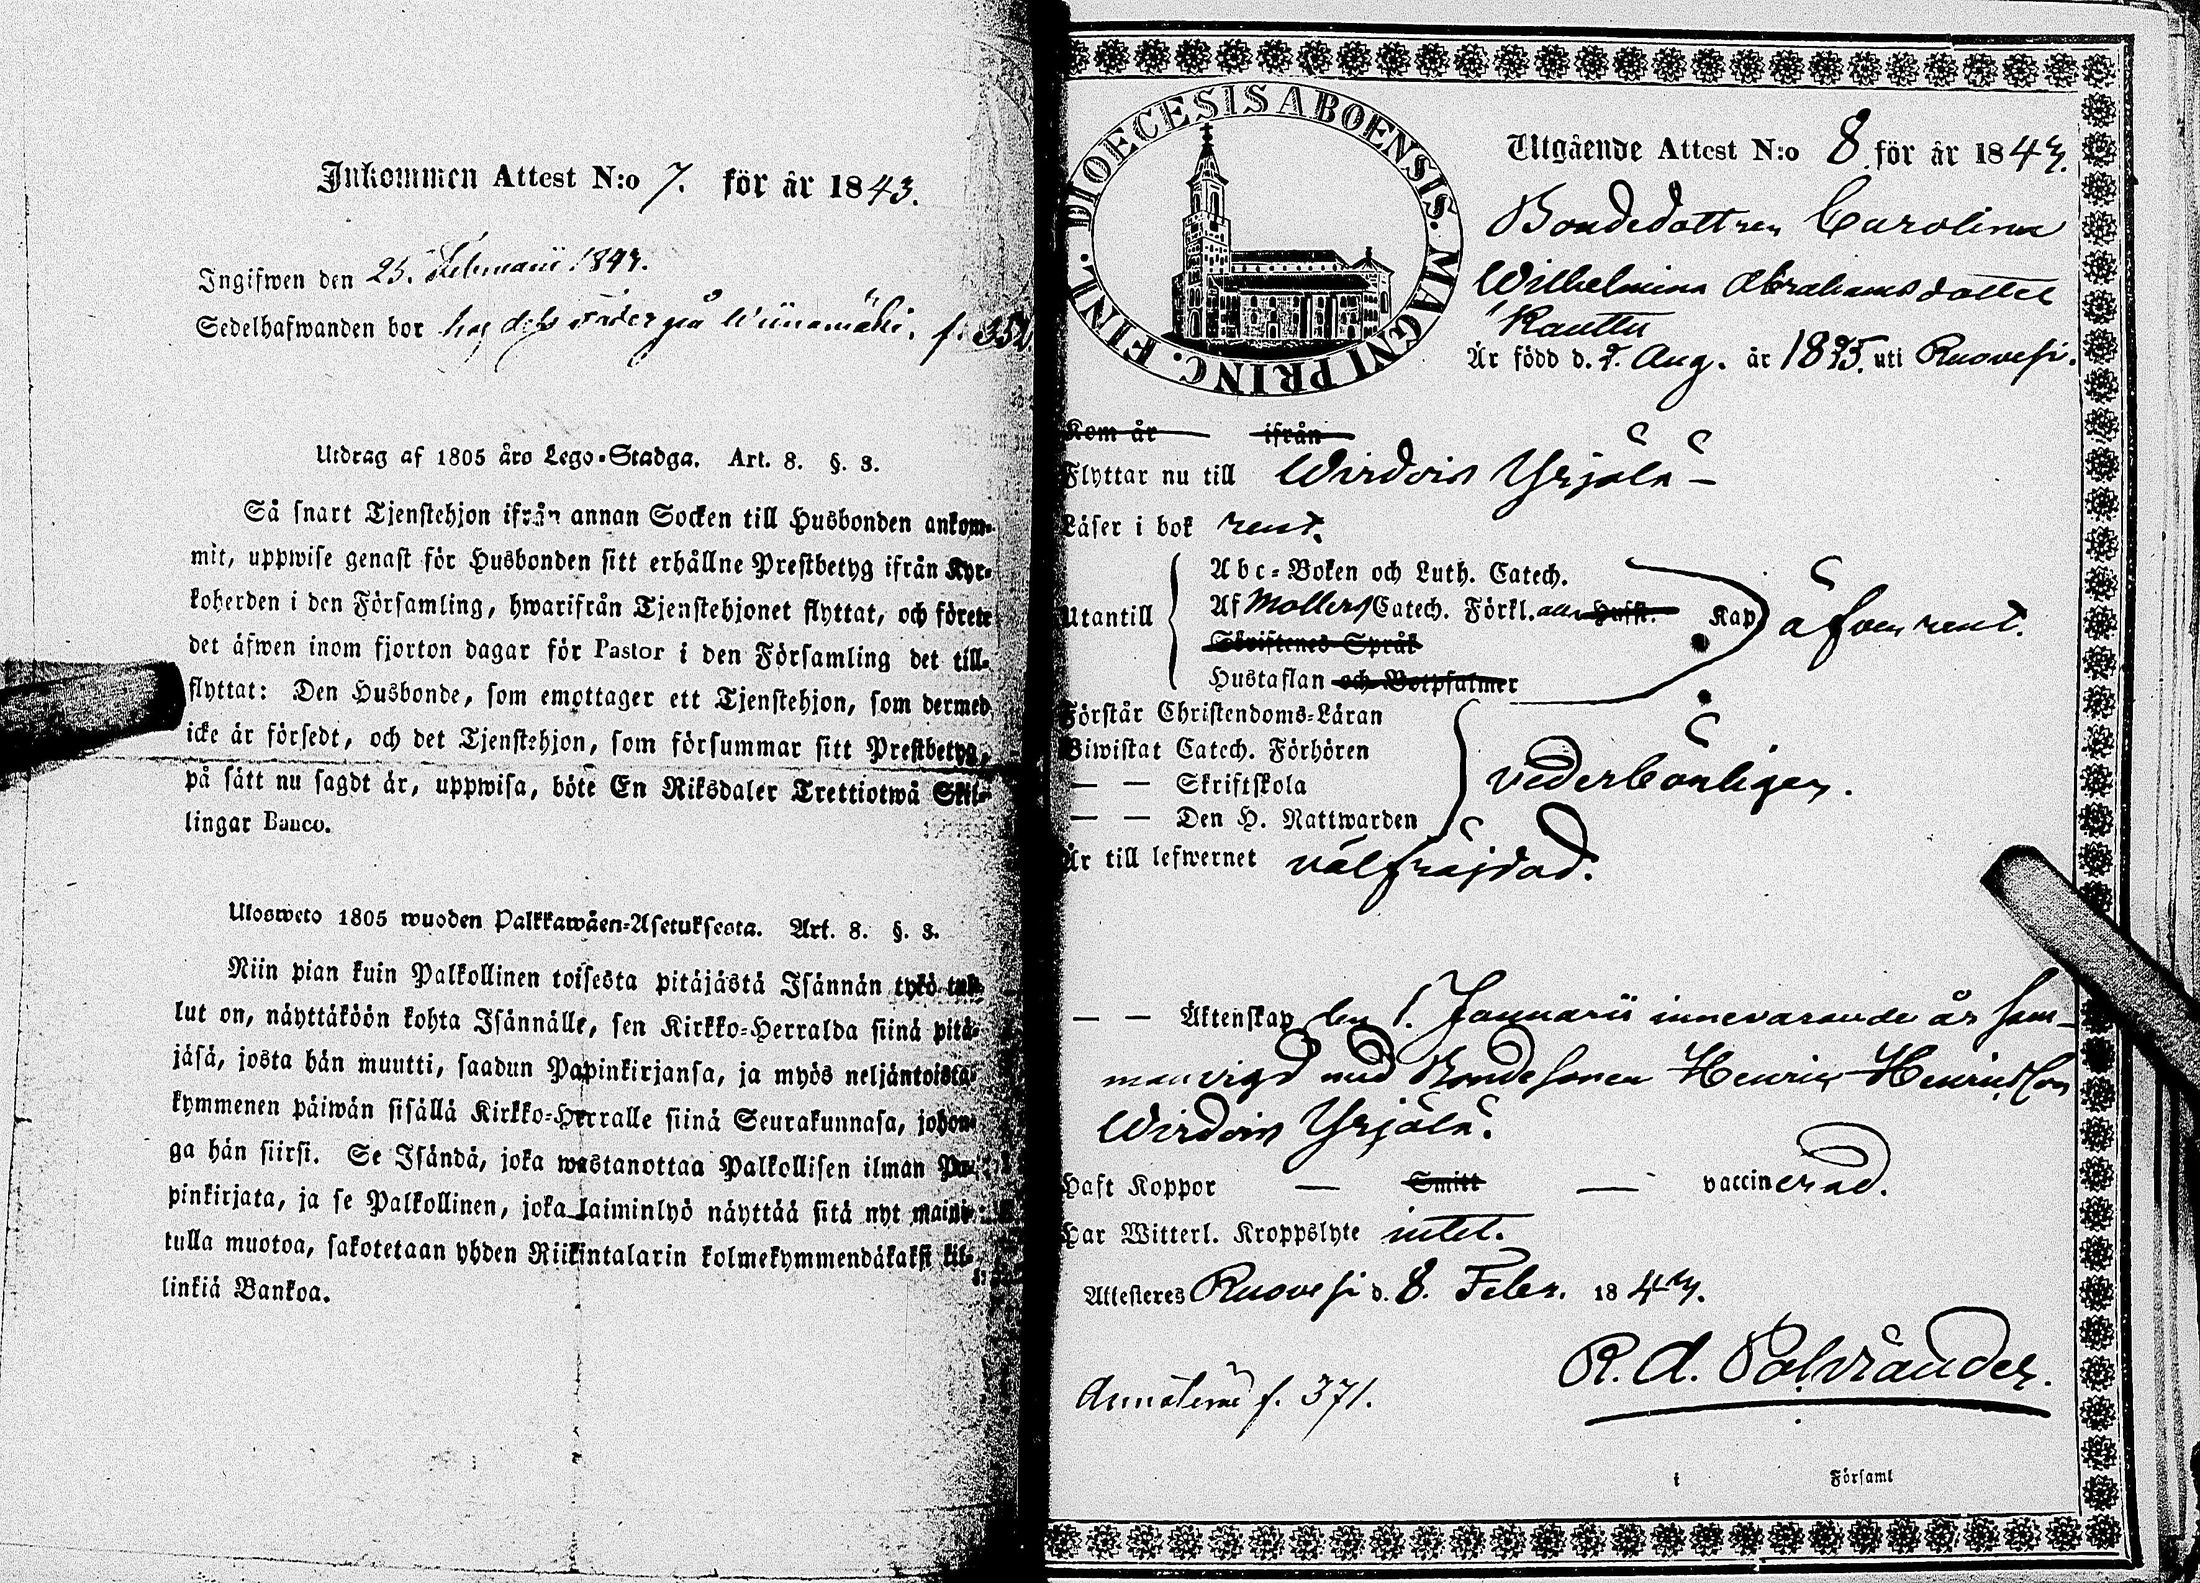 Inkommen Attest N:o 7. för år 1843.
Ingifwen den 25. Februarii 1843.
Sedelhafwanden bor hos dess fader på Wiinamäki. f. 352
Utdrag af 1805 års Lego-Stadga. Art. 8. §. 3.
Så snart Tjenstehjon ifrån annan Socken till Husbonden ankom-
mit, uppwise genast för Husbonden sitt erhållne Prestbetyg ifrån Kyr-
koherden i den Församling, hwarifrån Tjenstehjonet flyttat, och förete
det äfwen inom fjorton dagar för Pastor i den Församling det till-
flyttat: Den Husbonde, som emottager ett Tjenstehjon, som dermed
icke är försedt, och det Tjenstehjon, som försummar sitt Prestbetyg,
på sätt nu sagdt är, uppwisa, böte En Riksdaler Trettiotwå Skil-
lingar Banco.
Ulosweto 1805 wuoden Palkkawäen-Asetuksesta. Art. 8. §. 3.
Niin pian kuin Palkollinen toisesta pitäjästä Isännän tykö tul-
lut on, näyttäköön kohta Isännälle, sen Kirkko-Herralda siinä pitä-
jäsä, josta hän muutti, saadun Papinkirjansa, ja myös neljäntoista-
kymmenen päiwän sisällä Kirkko-Herralle siinä Seurakunnasa, johon-
ga hän siirsi. Se Isändä, joka wastanottaa Palkollisen ilman Pa-
pinkirjata, ja se Palkollinen, joka laiminlyö näyttää sitä nyt maini-
tulla muotoa, sakotetaan yhden Riikintalarin kolmekymmendäkaksi kil-
linkiä Bankoa.
DIOECESIS ABOENSIS. MAGNI PRINC. FINL.
Utgående Attest N:o 8 för år 1843.
Bondedottren Carolina
Wilhelmina Abrahamsdotter
Kauttu
Är född d. 7. Aug. år 1825. uti Ruovesi.
Kom år ifrån
Flyttar nu till Wirdois Yrjälä
Läser i bok rent.
Utantill
Abc-Boken och Luth. Catech.
Af Mollers Catech. Förkl. Kap
Skriftenes Språk
Hustaflan och Botpsalmer
äfven rent.
Förstår Christendoms-Läran
Biwistat Catech. Förhören
— — Skriftskola
— — Den H. Nattwarden
vederbörligen.
Är till lefwernet välfräjdad.
— — Äktenskap den 1. Januarii innevarande år sam-
manvigd med Bondesonen Henric Henricsson
Wirdois Yrjälä.
Haft Koppor — Smitt — vaccinerad.
Har Witterl. Kroppslyte intet.
Attesteres Ruovesi d. 8. Febr. 1843.
R. A. Polviander.
f. 371.
i Församl